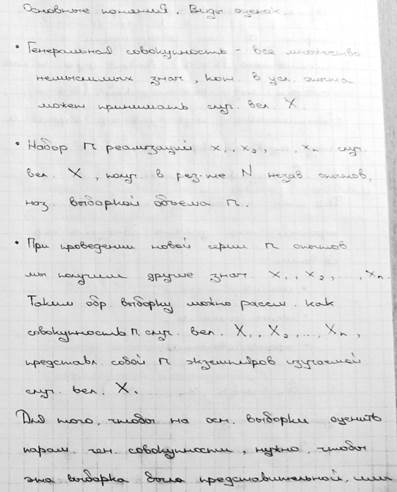 Основные понятия. Виды оценок.
• Генеральная совокупность - все множество
немыслимых знач., кот. в усл. опыта
может принимать случ. вел. X.
• Набор n реализаций x₁, x₂, ..., xₙ случ.
вел. X, получ. в рез-те N незав. опытов,
наз. выборкой объема n.
• При проведении новой серии n опытов
мы получим другие знач. x₁, x₂, ..., xₙ.
Таким обр. выборку можно рассм. как
совокупность n случ. вел. X₁, X₂, ..., Xₙ,
представл. собой n экземпляров изучаемой
случ. вел. X.
Для того, чтобы на осн. выборки оценить
парам. ген. совокупности, нужно, чтобы
эта выборка была представительной, или